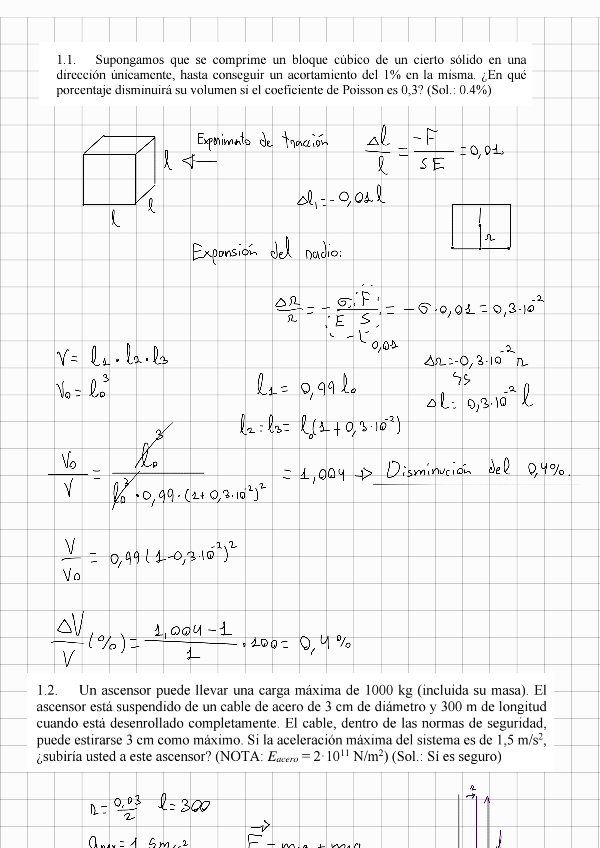 1.1. Supongamos que se comprime un bloque cúbico de un cierto sólido en una
dirección únicamente, hasta conseguir un acortamiento del 1% en la misma. ¿En qué
porcentaje disminuirá su volumen si el coeficiente de Poisson es 0,3? (Sol.: 0.4%)
Experimento de tracción
Δl/l = -F/SE = 0,01
l
l
l
Δl₁ = -0,01 l
r
Expansión del radio:
Δr/r = - σ/E F/S = -σ·0,01 = 0,3·10⁻²
-0,01
V = l₁ · l₂ · l₃
Δr = -0,3·10⁻² r
V₀ = l₀³
l₁ = 0,99 l₀
Δl = 0,3·10⁻² l
l₂ = l₃ = l₀(1+0,3·10⁻²)
V₀/V = l₀³/(l₀³ · 0,99 · (1+0,3·10⁻²)²) = 1,004 → Disminución del 0,4%.
V/V₀ = 0,99 (1-0,3·10⁻²)²
ΔV/V (%) = (1,004-1)/1 · 100 = 0,4%
1.2. Un ascensor puede llevar una carga máxima de 1000 kg (incluida su masa). El
ascensor está suspendido de un cable de acero de 3 cm de diámetro y 300 m de longitud
cuando está desenrollado completamente. El cable, dentro de las normas de seguridad,
puede estirarse 3 cm como máximo. Si la aceleración máxima del sistema es de 1,5 m/s²,
¿subiría usted a este ascensor? (NOTA: E_acero = 2·10¹¹ N/m²) (Sol.: Sí es seguro)
r = 0,03/2 l = 300
r